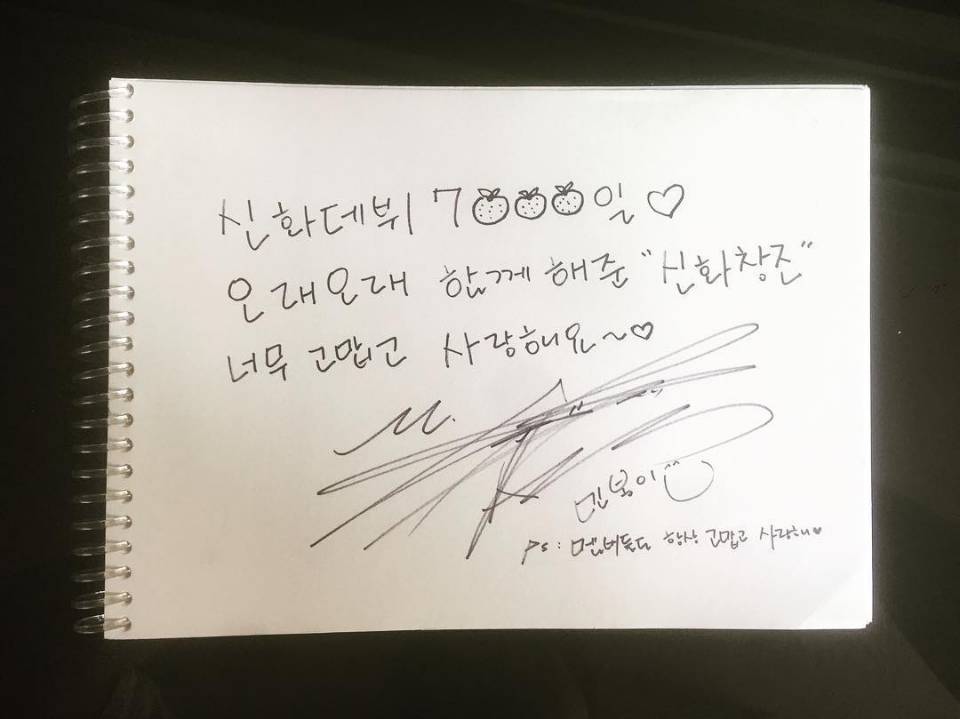 신화데뷔 7000일♡
오래오래 함께해준 "신화창조"
너무 고맙고 사랑해요~♡
M.
민봉이
PS : 멤버들도 항상 고맙고 사랑해♥